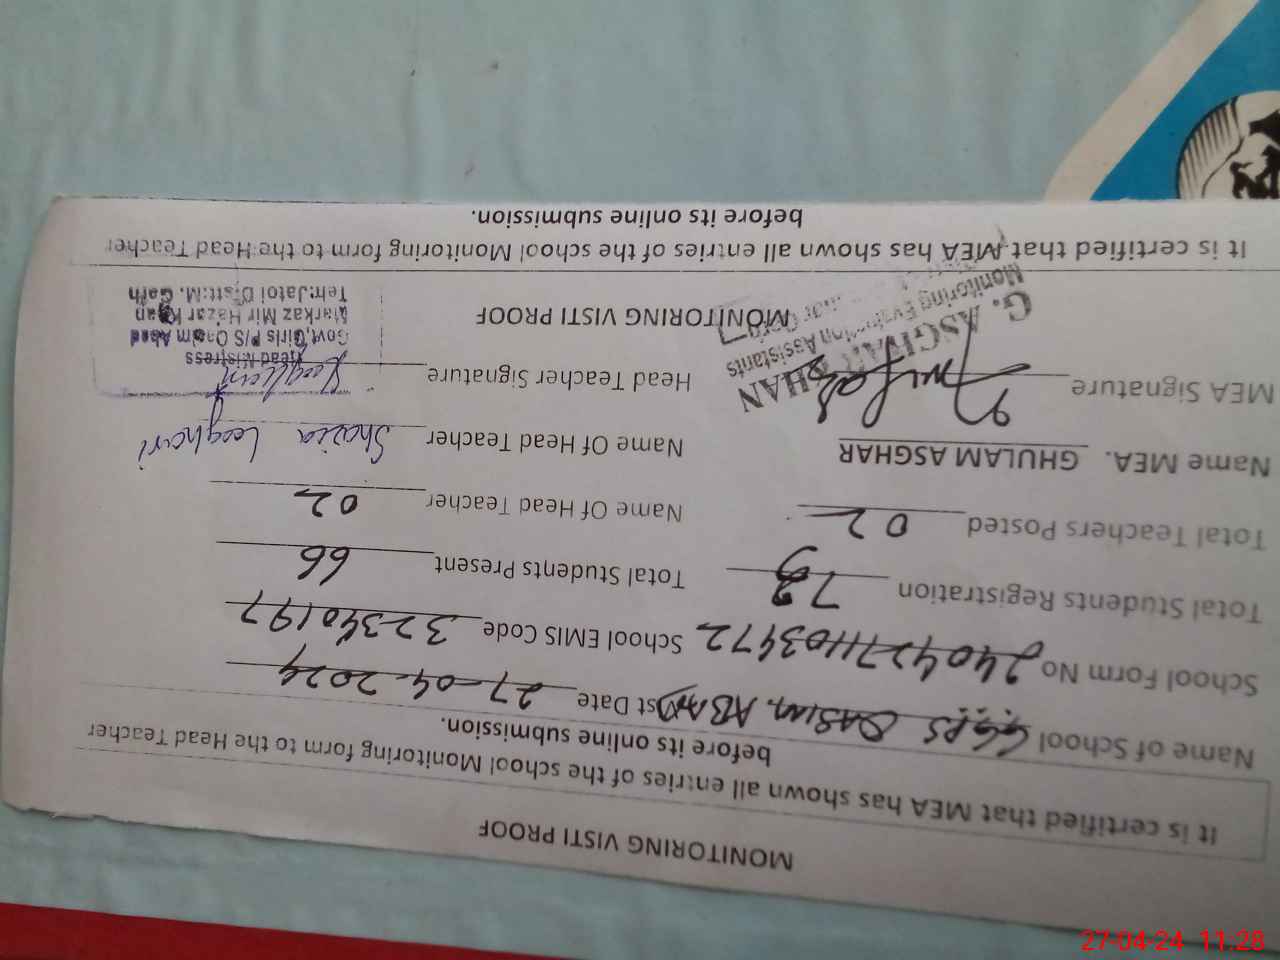 MONITORING VISTI PROOF
It is certified that MEA has shown all entries of the school Monitoring form to the Head Teacher
before its online submission.
Name of School GGPS QASIM ABAD st Date 27-04-2024
School Form No 2404271103472 School EMIS Code 32340197
Total Students Registration 73 Total Students Present 66
Total Teachers Posted 02 Name Of Head Teacher 02
Name MEA. GHULAM ASGHAR Name Of Head Teacher Shazia Leeghari
MEA Signature Head Teacher Signature
G. ASGHAR KHAN
Monitoring Evaluation Assistants
Head Mistress
Govt, Girls P/S Qasim Abad
Markaz Mir Hazar Khan
Teh: Jatoi Distt: M. Garh
MONITORING VISTI PROOF
It is certified that MEA has shown all entries of the school Monitoring form to the Head Teacher
before its online submission.
27-04-24 11:28